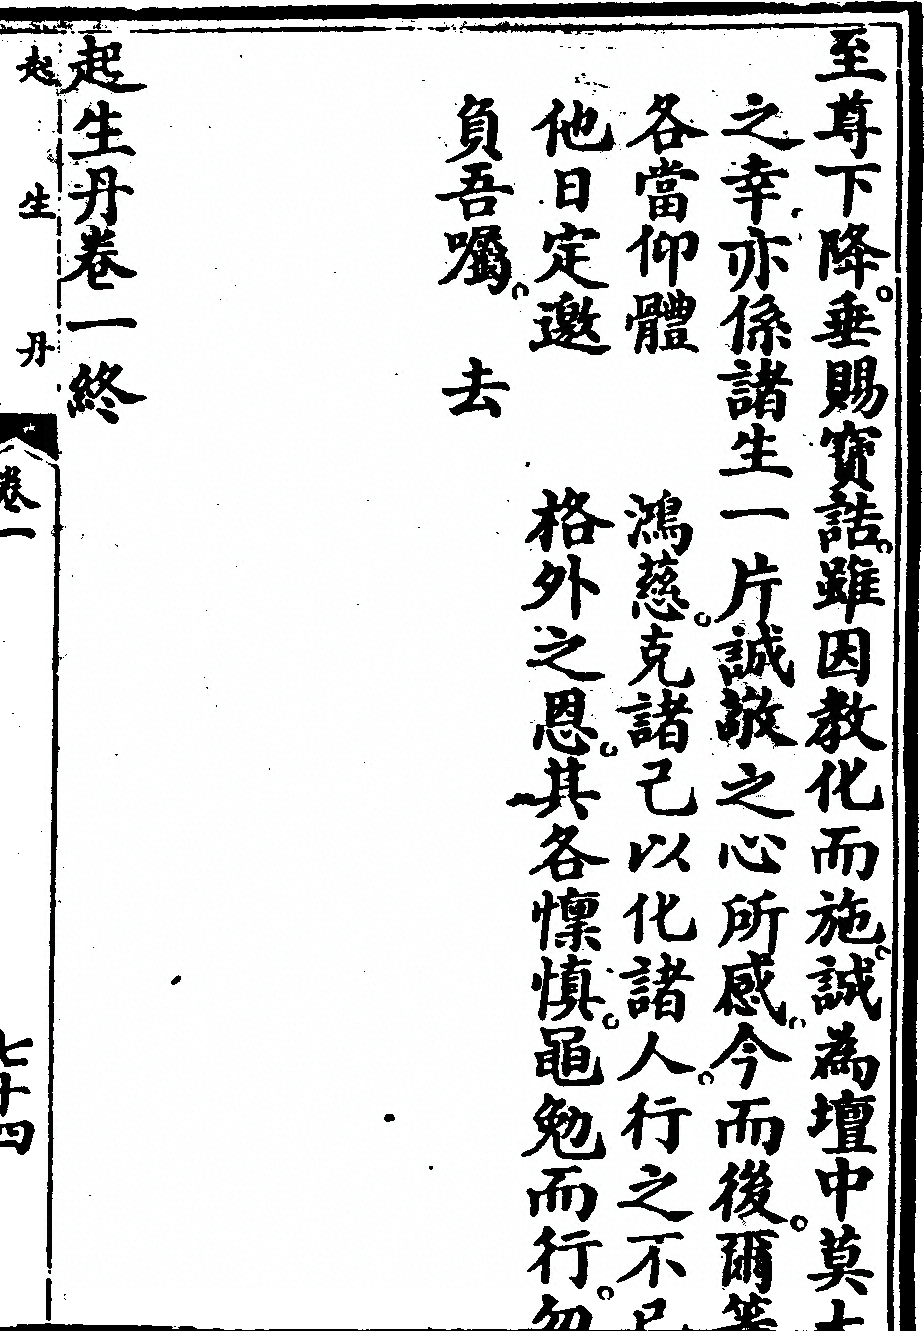 至尊下降。垂賜寶誥。雖因教化而施。誠為壇中莫
之幸。亦係諸生一片誠敬之心所感。今而後。爾等
各當仰體 鴻慈。克諸己以化諸人。行之不
他日定邀 格外之恩。其各懍慎。黽勉而行。勿
負吾囑。 去
起生丹卷一終
起生丹 卷一 七十四